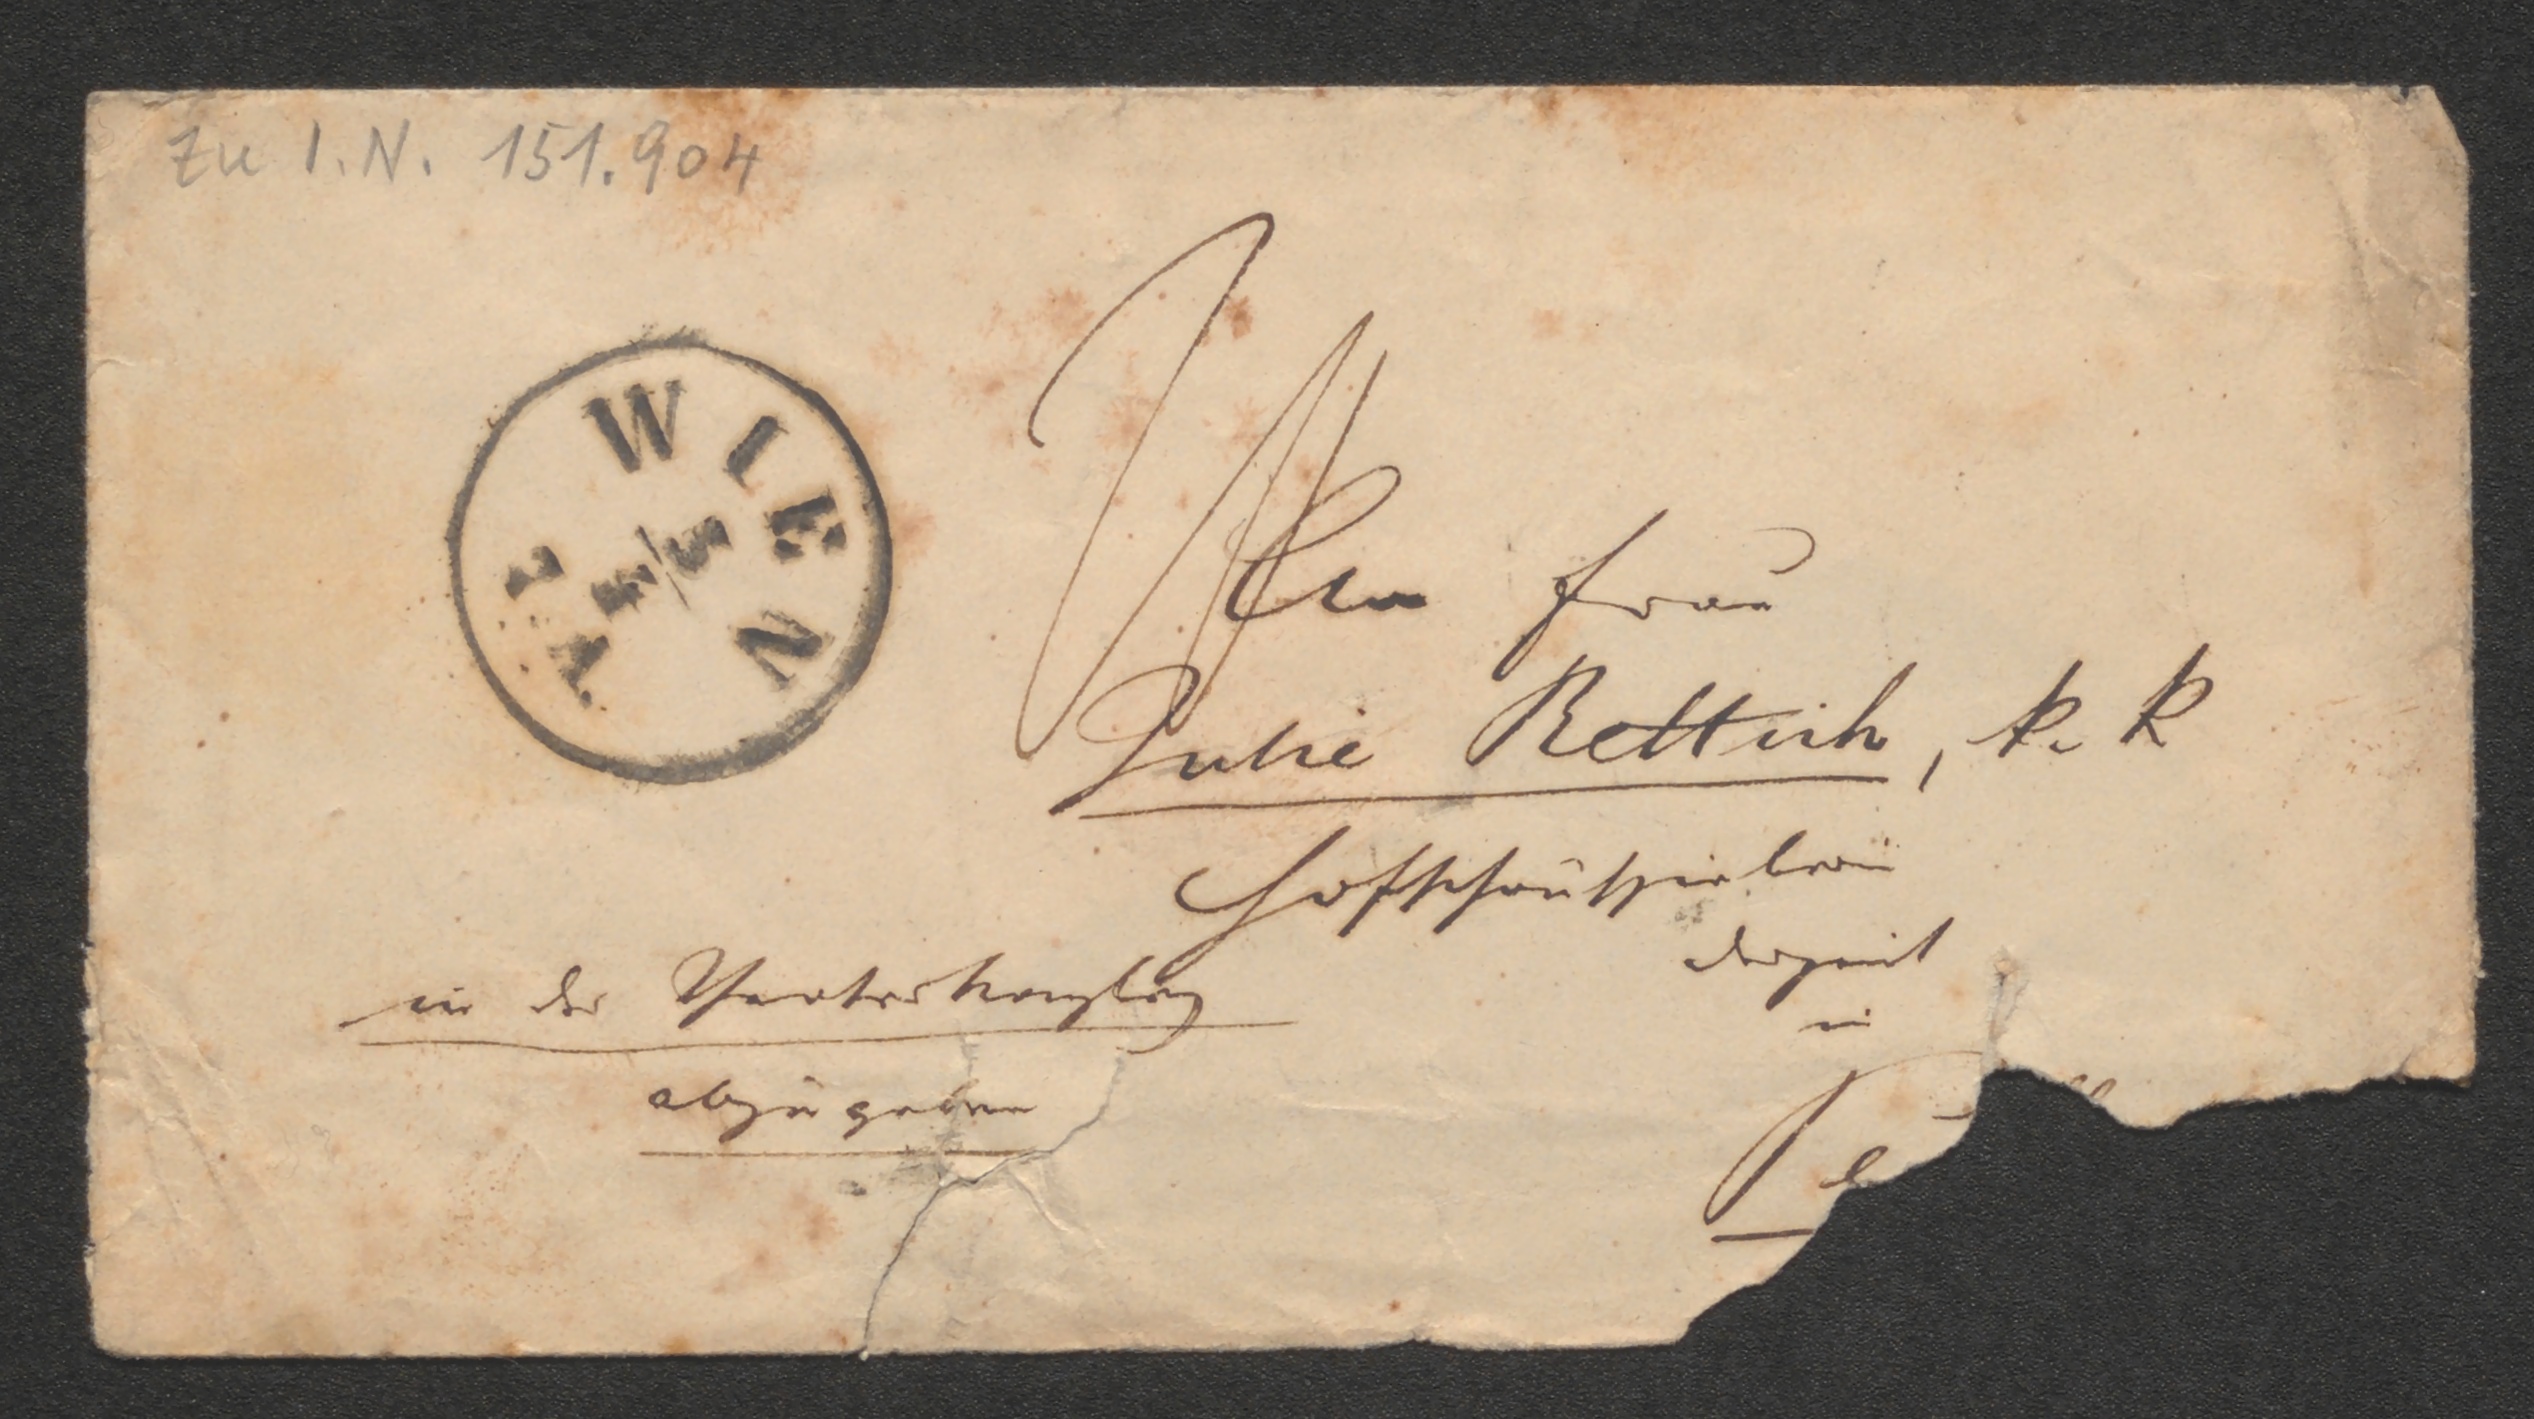 Zu I.N. 151.904
WIEN
5/5
Frau
Julie Rettich, k. k
Hofschauspielerin
derzeit
in
Pe
in der Theaterkanzley
abzugeben